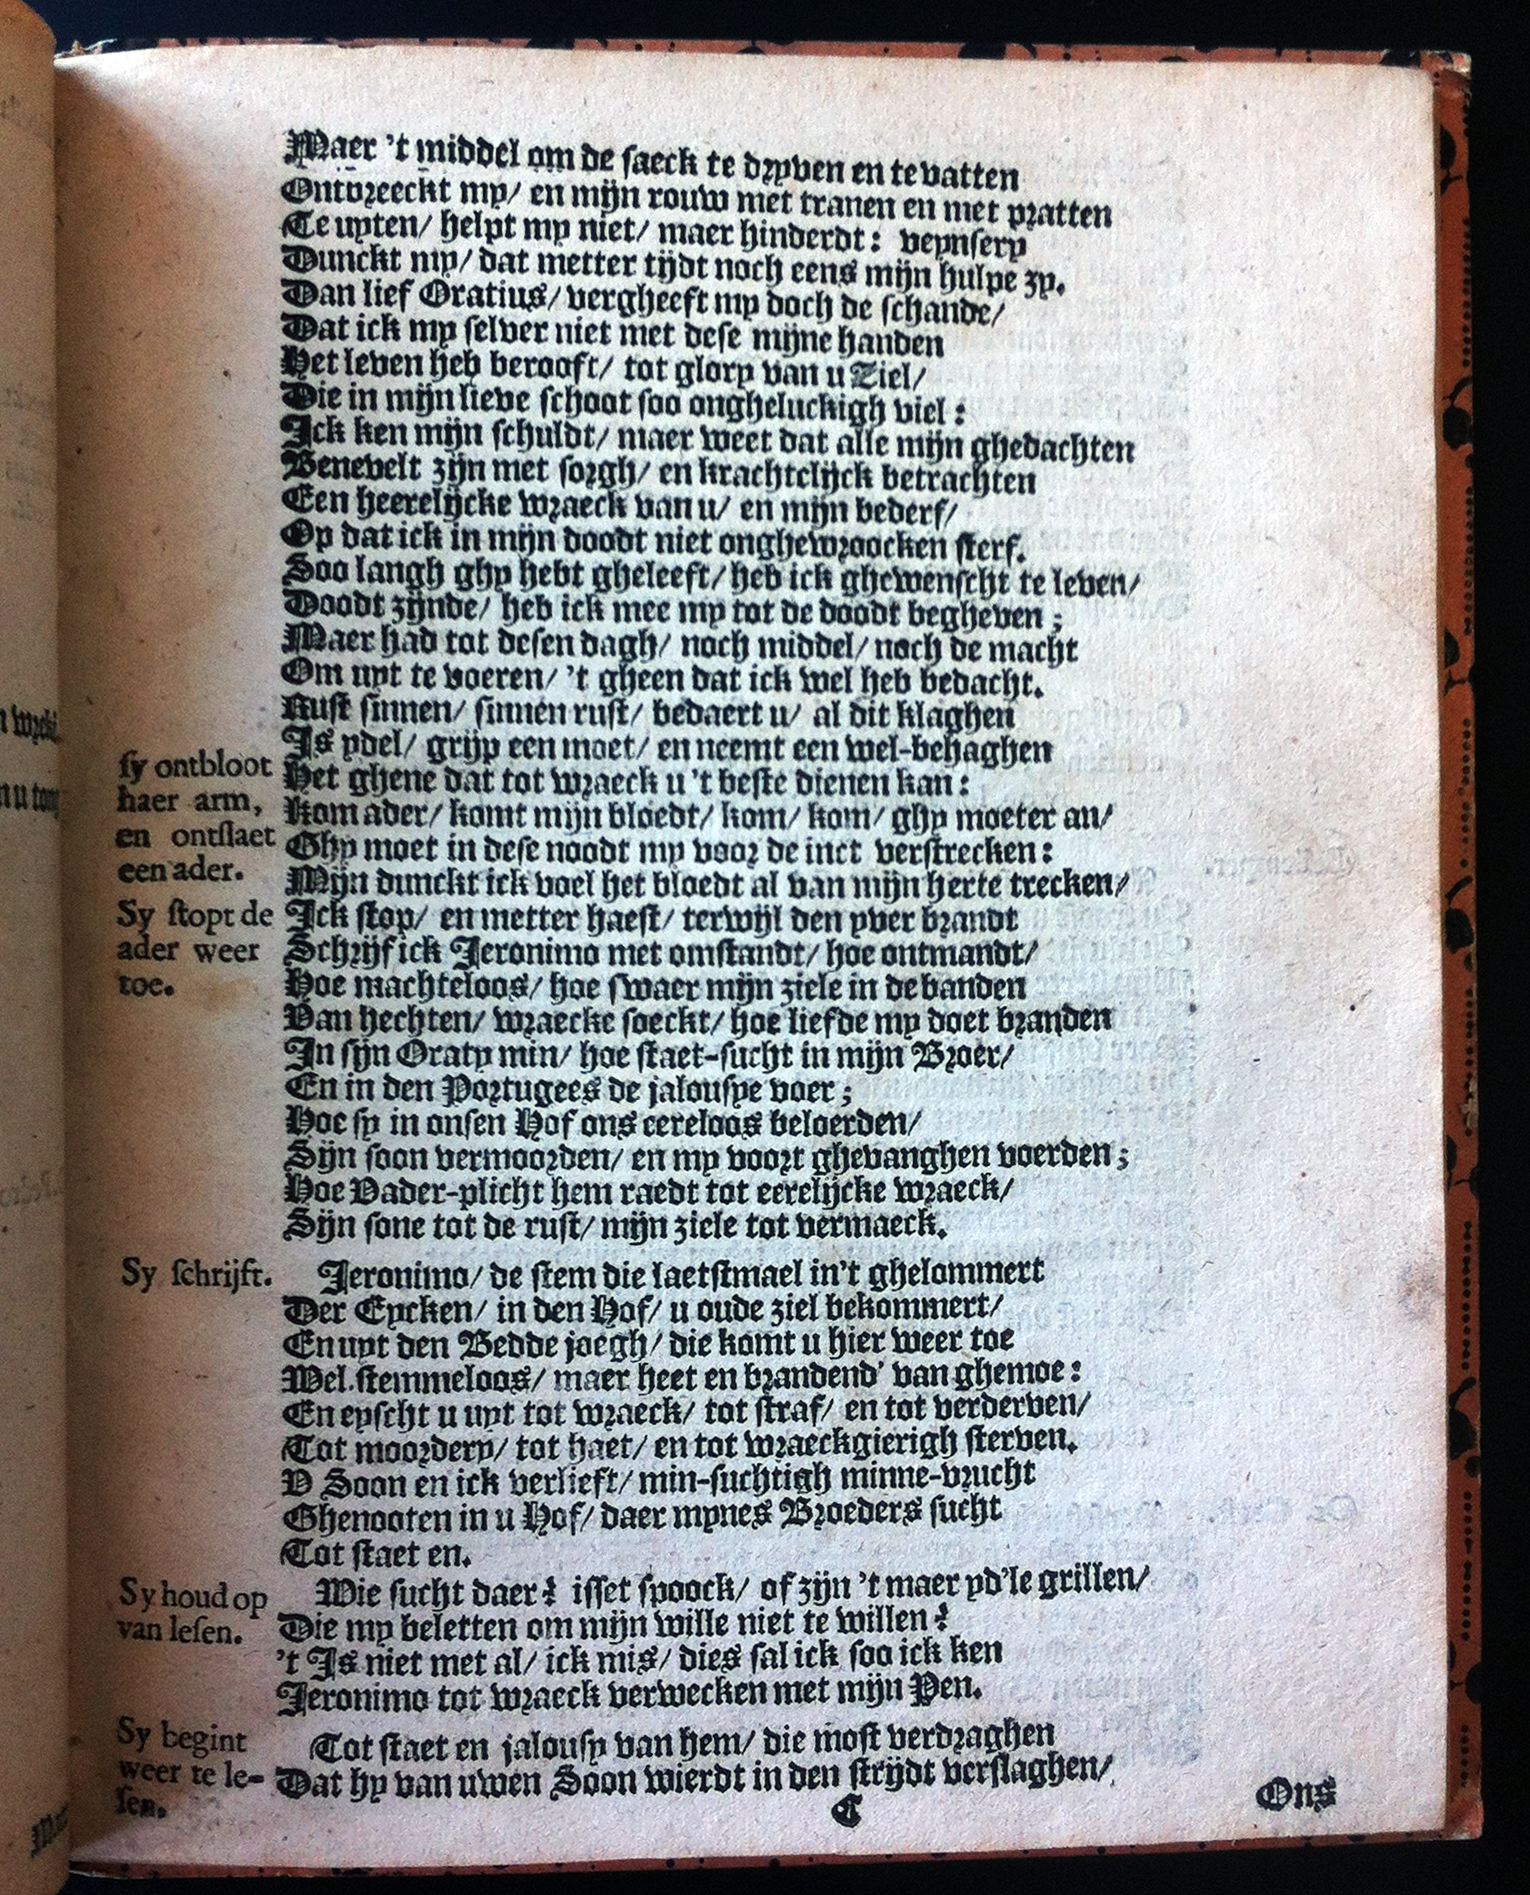 Maer 't middel om de saeck te dryven en te vatten
Ontbreeckt my/ en mijn rouw met tranen en met pratten
Te uyten/ helpt my niet/ maer hinderdt: veynsery
Dunckt my/ dat metter tijdt noch eens mijn hulpe zy.
Dan lief Oratius/ vergheeft my doch de schande/
Dat ick my selver niet met dese mijne handen
Het leven heb berooft/ tot glory van u Ziel/
Die in mijn lieve schoot soo ongheluckigh viel:
Ick ken mijn schuldt/ maer weet dat alle mijn ghedachten
Benevelt zijn met sorgh/ en krachtelijck betrachten
Een heerelijcke wraeck van u/ en mijn bederf/
Op dat ick in mijn doodt niet onghewroocken sterf.
Soo langh ghy hebt gheleeft/ heb ick ghewenscht te leven/
Doodt zijnde/ heb ick mee my tot de doodt begheven;
Maer had tot desen dagh/ noch middel/ noch de macht
Om uyt te voeren/ 't gheen dat ick wel heb bedacht.
Rust sinnen/ sinnen rust/ bedaert u/ al dit klaghen
Is ydel/ grijp een moet/ en neemt een wel-behaghen
sy ontbloot haer arm, en ontslaet een ader.
Het ghene dat tot wraeck u 't beste dienen kan:
Kom ader/ komt mijn bloedt/ kom/ kom/ ghy moeter an/
Ghy moet in dese noodt my voor de inct verstrecken:
Mijn dunckt ick voel het bloedt al van mijn herte trecken/
Sy stopt de ader weer toe.
Ick stop/ en metter haest/ terwijl den yver brandt
Schrijf ick Jeronimo met omstandt/ hoe ontmandt/
Hoe machteloos/ hoe swaer mijn ziele in de banden
Van hechten/ wraecke soeckt/ hoe liefde my doet branden
In sijn Oraty min/ hoe staet-sucht in mijn Broer/
En in den Portugees de jalousye voer;
Hoe sy in onsen Hof ons eereloos beloerden/
Sijn soon vermoorden/ en my voort ghevanghen voerden;
Hoe Vader-plicht hem raedt tot eerelijcke wraeck/
Sijn sone tot de rust/ mijn ziele tot vermaeck.
Sy schrijft.
Jeronimo/ de stem die laetstmael in't ghelommert
Der Eycken/ in den Hof/ u oude ziel bekommert/
En uyt den Bedde joegh/ die komt u hier weer toe
Wel stemmeloos/ maer heet en brandend' van ghemoe:
En eyscht u uyt tot wraeck/ tot straf/ en tot verderven/
Tot moordery/ tot haet/ en tot wraeckgierigh sterven.
V Soon en ick verlieft/ min-suchtigh minne-vrucht
Ghenooten in u Hof/ daer mynes Broeders sucht
Tot staet en.
Sy houd op van lesen.
Wie sucht daer? isset spoock/ of zijn 't maer yd'le grillen/
Die my beletten om mijn wille niet te willen?
't Is niet met al/ ick mis/ dies sal ick soo ick ken
Jeronimo tot wraeck verwecken met mijn Pen.
Sy begint weer te le-sen.
Tot staet en jalousy van hem/ die most verdraghen
Dat hy van uwen Soon wierdt in den strijdt verslaghen/
C
Ons